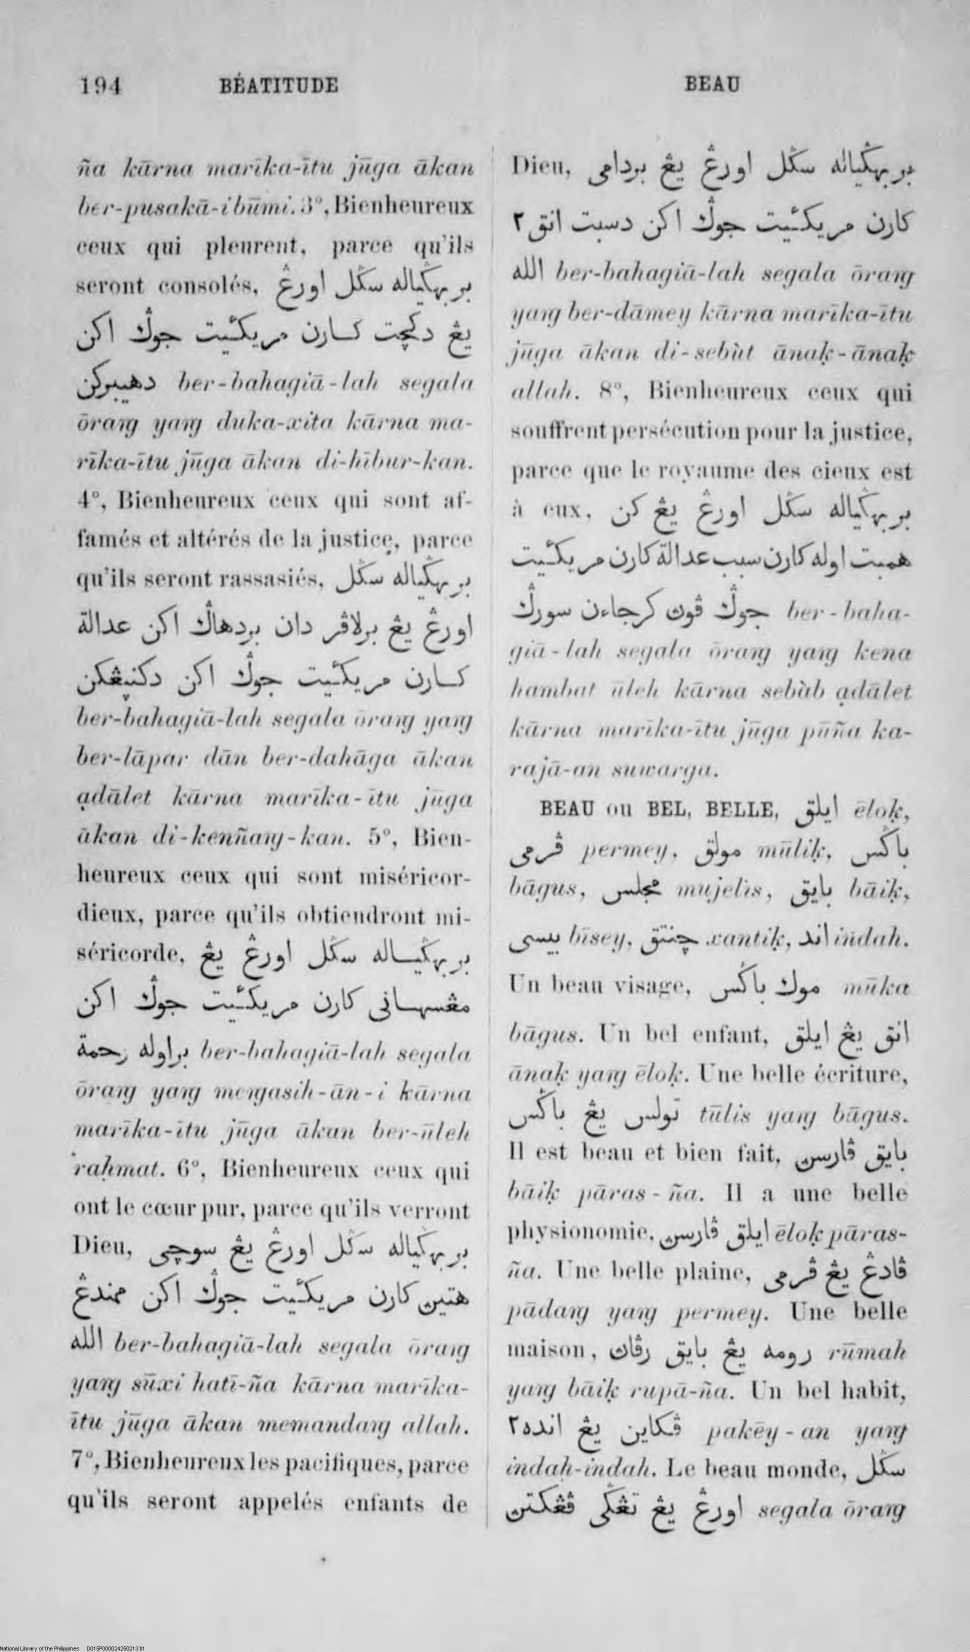 194 BÉATITUDE BEAU
ña kārna marīka-ītu jūga ākan
ber-pusakā-i būmi. 3°, Bienheureux
ceux qui pleurent, parce qu'ils
seront consolés, بر بهݢياله سݢل اورڠ
يڠ دكچت كارن مريكئيت جوݢ اكن
دهيبركن ber-bahagiā-lah segala
ōraŋ yaŋ duka-xita kārna ma-
rīka-ītu jūga ākan di-hībur-kan.
4°, Bienheureux ceux qui sont af-
famés et altérés de la justice, parce
qu'ils seront rassasiés, بر بهݢياله سݢل
اورڠ يڠ برلاڤر دان بردهاݢ اكن عدالة
كارن مريكئيت جوݢ اكن دكنيڠكن
ber-bahagiā-lah segala ōraŋ yaŋ
ber-lāpar dān ber-dahāga ākan
ạdālet kārna marīka-ītu jūga
ākan di-kenñaŋ-kan. 5°, Bien-
heureux ceux qui sont miséricor-
dieux, parce qu'ils obtiendront mi-
séricorde, بر بهݢياله سݢل اورڠ يڠ
مڠسهاني كارن مريكئيت جوݢ اكن
براوله رحمة ber-bahagiā-lah segala
ōraŋ yaŋ meŋasih-ān-i kārna
marīka-ītu jūga ākan ber-ūleh
raḥmat. 6°, Bienheureux ceux qui
ont le cœur pur, parce qu'ils verront
Dieu, بر بهݢياله سݢل اورڠ يڠ سوچي
هتين كارن مريكئيت جوݢ اكن ممندڠ
الله ber-bahagiā-lah segala ōraŋ
yaŋ sūxi hatī-ña kārna marīka-
ītu jūga ākan memandaŋ allah.
7°, Bienheureux les pacifiques, parce
qu'ils seront appelés enfants de
Dieu, بر بهݢياله سݢل اورڠ يڠ بردامي
كارن مريكئيت جوݢ اكن دسبت انق ٢
الله ber-bahagiā-lah segala ōraŋ
yaŋ ber-dāmey kārna marīka-ītu
jūga ākan di-sebùt ānaḳ-ānaḳ
allah. 8°, Bienheureux ceux qui
souffrent persécution pour la justice,
parce que le royaume des cieux est
à eux, بر بهݢياله سݢل اورڠ يڠ كن
همبت اوله كارن سبب عدالة كارن مريكئيت
جوݢ ڤون كرجاءن سورݢ ber-baha-
giā-lah segala ōraŋ yaŋ kena
hambat ūleh kārna sebàb ạdālet
kārna marīka-ītu jūga pūña ka-
rajā-an suwarga.
BEAU ou BEL, BELLE, ايلق ēloḳ,
ڤرمي permey, مولق mūliḳ, باݢس
bāgus, مجلس mujelis, بايق bāiḳ,
بيسي bīsey, چنتق xantiḳ, اند indah.
Un beau visage, موك باݢس mūka
bāgus. Un bel enfant, انق يڠ ايلق
ānaḳ yaŋ ēloḳ. Une belle écriture,
تولس يڠ باݢس tūlis yaŋ bāgus.
Il est beau et bien fait, بايق ڤارسن
bāiḳ pāras-ña. Il a une belle
physionomie, ايلق ڤارسن ēloḳ pāras-
ña. Une belle plaine, ڤادڠ يڠ ڤرمي
pādaŋ yaŋ permey. Une belle
maison, رومه يڠ بايق رڤان rūmah
yaŋ bāiḳ rupā-ña. Un bel habit,
ڤكاين يڠ انده٢ pakēy-an yaŋ
indah-indah. Le beau monde, سݢل
اورڠ يڠ تڠݢي ڤڠكتن segala ōraŋ
National Library of the Philippines